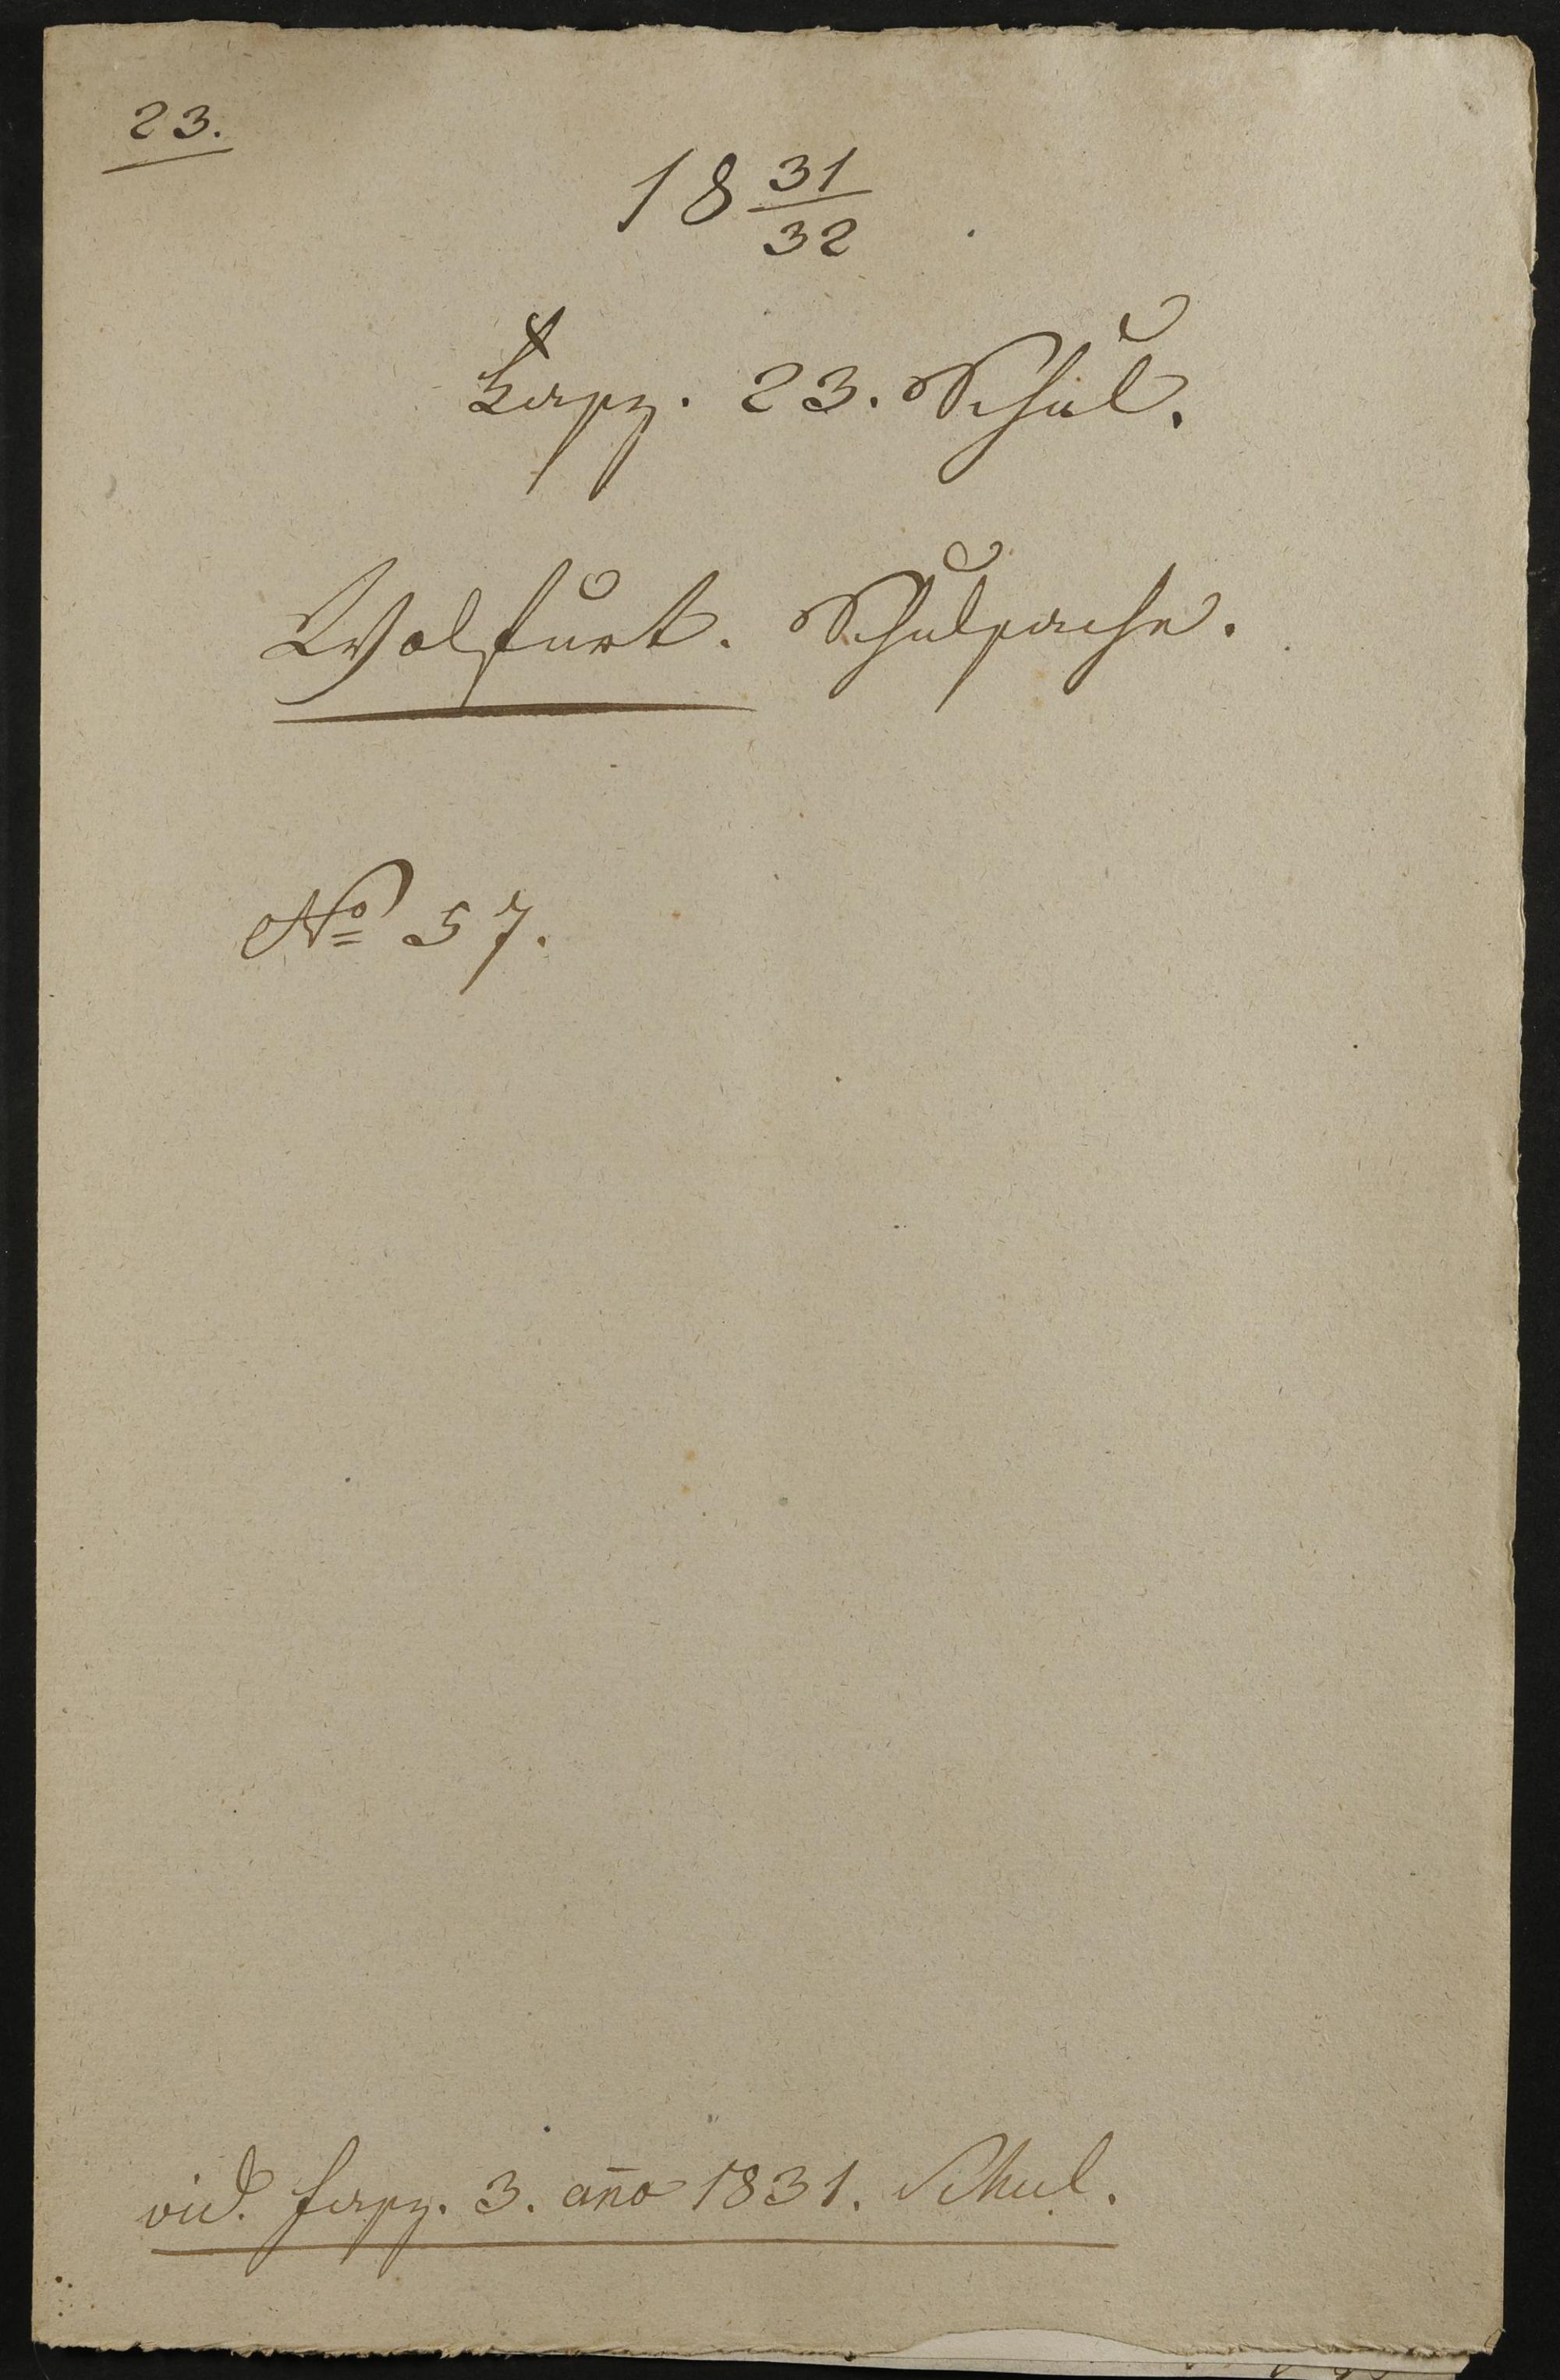 23.
18 31/32
Fasz. 23. Schul.
Wolfurt. Schulsache.
No 57.
vid. fasz. 3. año 1831. Schul.